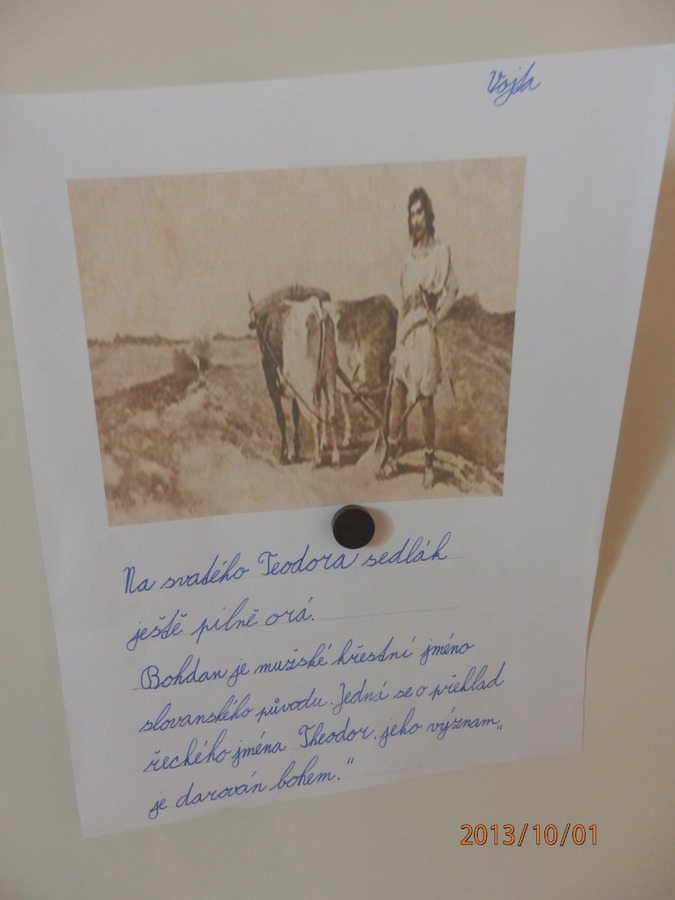 Vojta
Na svatého Teodora sedlák
ještě pilně orá.
Bohdan je mužské křestní jméno
slovanského původu. Jedná se o překlad
řeckého jména Theodor, jeho význam „
je darován bohem."
2013/10/01